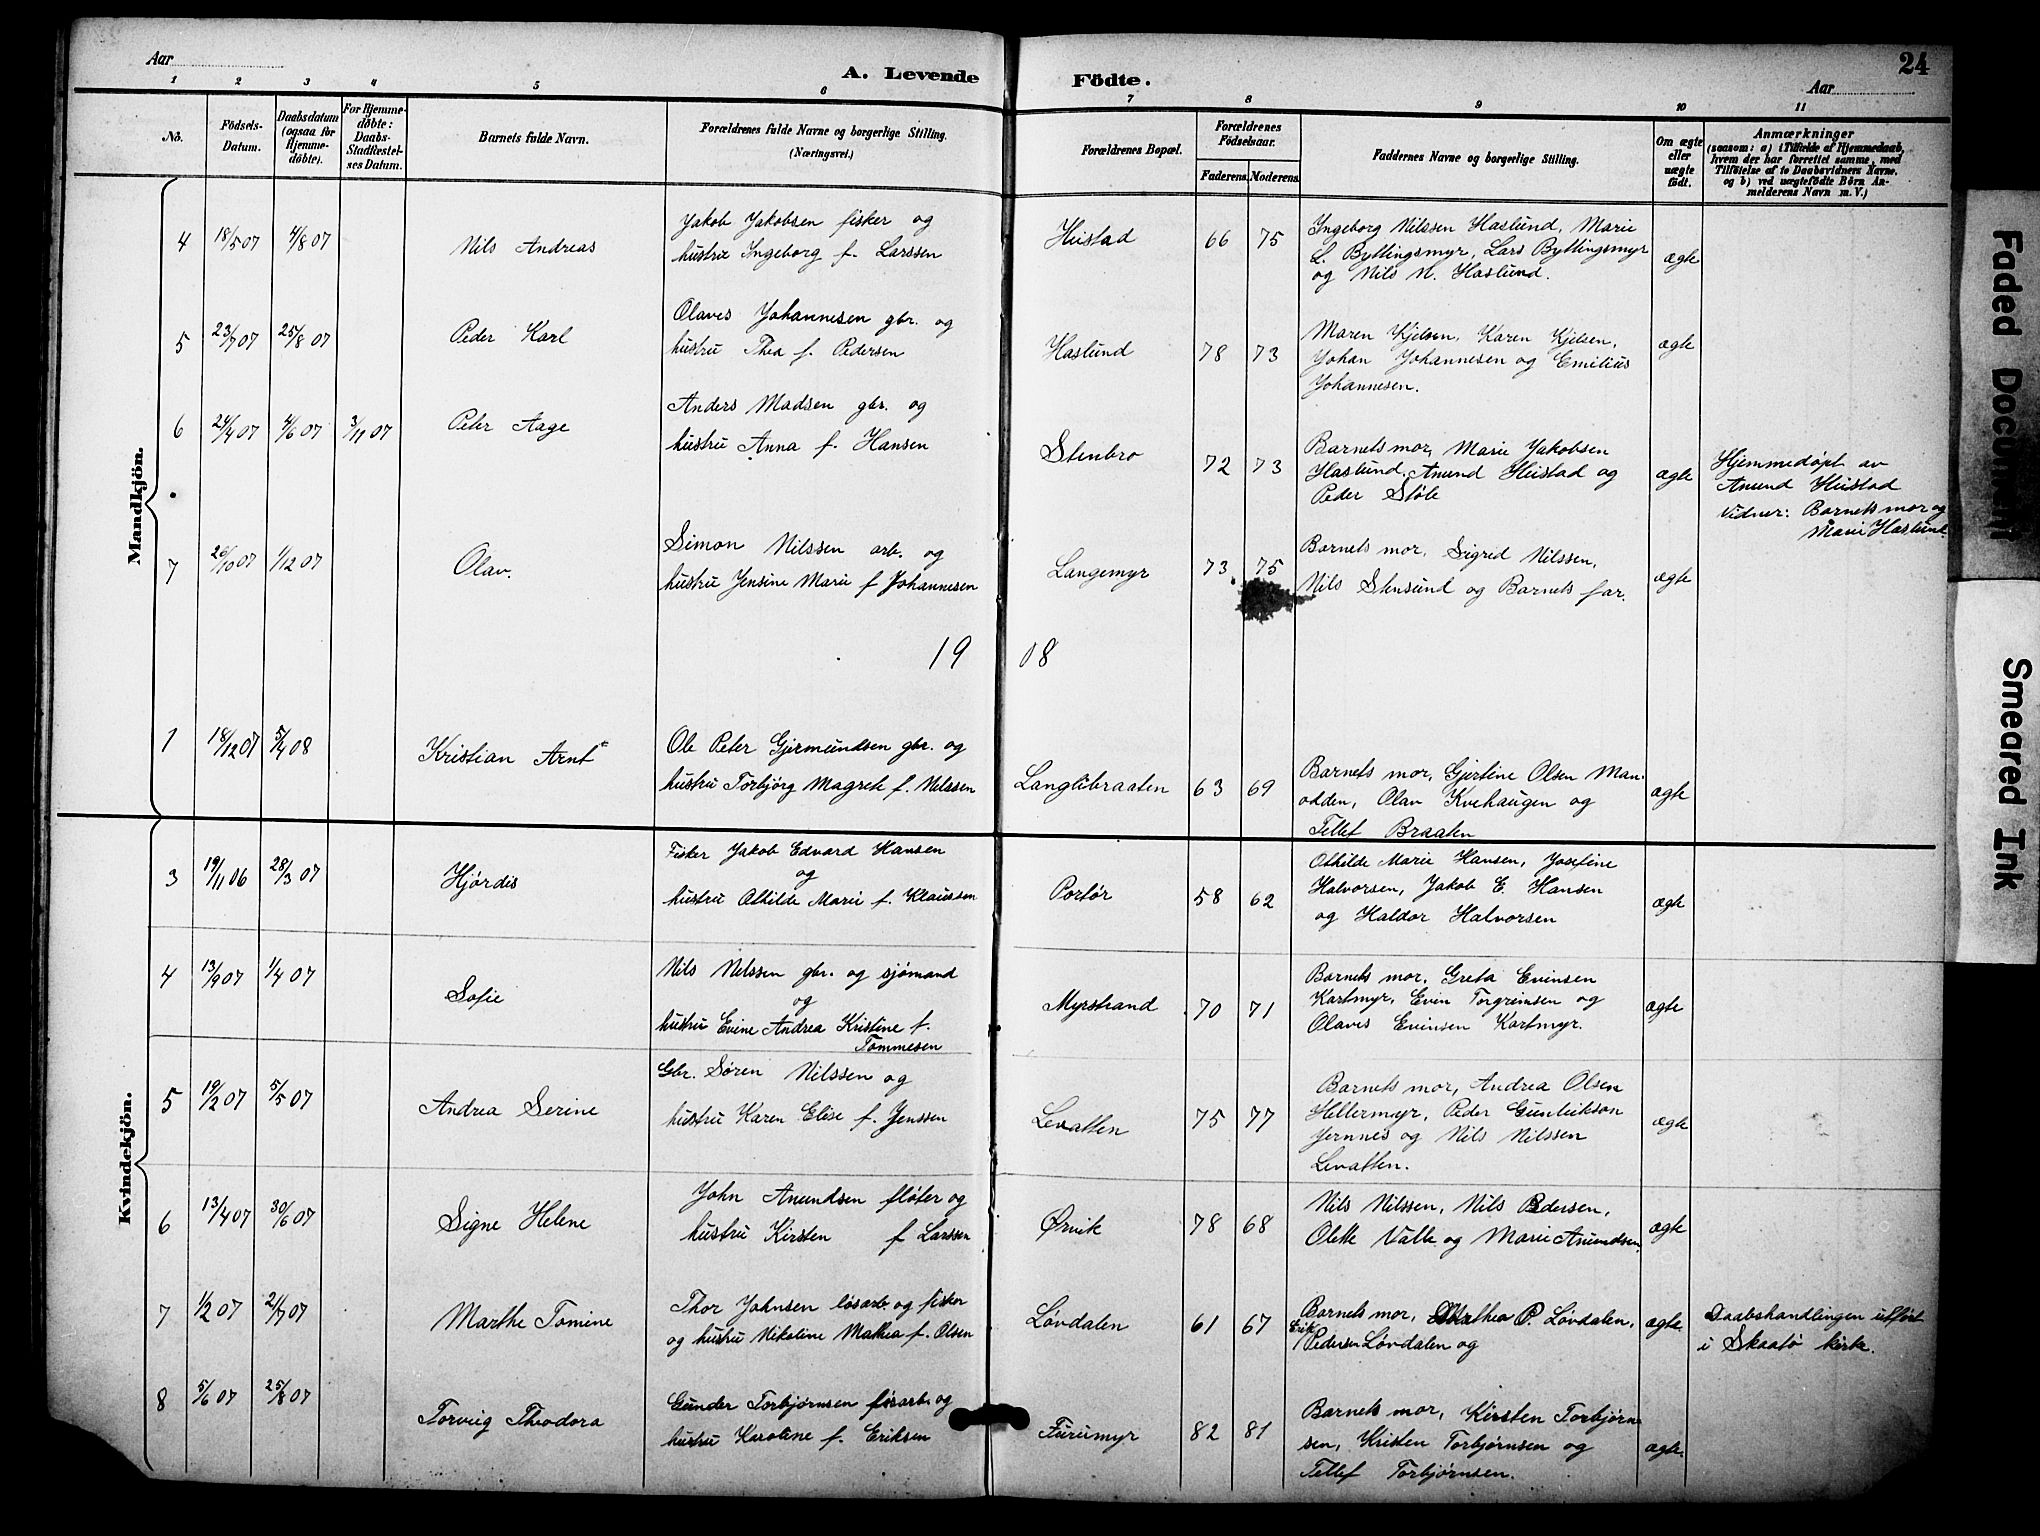 Aar
A. Levende Födte.
24
Aar
1 2 3 4 5 6 7 8 9 10 11
No.
Födsels-Datum.
Daabsdatum (ogsaa for Hjemmedöbte).
For Hjemmedöbte: Daabs-Stadfæstelses Datum.
Barnets fulde Navn.
Forældrenes fulde Navne og borgerlige Stilling.
(Næringsvei.)
Forældrenes Bopæl.
Forældrenes Födselsaar.
Faderens. Moderens.
Faddernes Navne og borgerlige Stilling.
Om ægte eller uægte födt.
Anmærkninger
(saasom: a) i Tilfælde af Hjemmedaab, hvem der har forrettet samme, med Tilföielse af to Daabsvidners Navne, og b) ved uægtefödte Börn Anmelderens Navn m. V.)
Mandkjön.
4 18/5 07 4/8 07 Nils Andreas
Jakob Jakobsen fisker og
hustru Ingeborg f. Larssen
Heistad 66 75
Ingeborg Nilssen Haslund, Marie
L. Byttingsmyr, Lars Byttingsmyr
og Nils N. Haslund.
ægte
5 23/7 07 25/8 07 Peder Karl
Olaves Johannesen gbr. og
hustru Thea f. Pedersen
Haslund 78 73
Maren Kjelsen, Karen Kjelsen,
Johan Johannesen og Emilius
Johannesen.
ægte
6 24/4 07 4/6 07 3/11 07 Peter Aage
Anders Madsen gbr. og
hustru Anna f. Hansen
Stenbro 72 73
Barnets mor, Marie Jakobsen
Haslund, Anund Heistad og
Peder Støle
ægte
Hjemmedøpt av
Anund Heistad
Vidner: Barnets mor og
Marie Haslund.
7 26/10 07 1/12 07 Olav.
Simon Nilssen arb. og
hustru Jensine Marie f Johannesen
Langemyr 73 75
Barnets mor, Sigrid Nilssen,
Nils Stensund og Barnets far.
ægte
19 08
1 18/12 07 5/4 08 Kristian Arnt
Ole Peter Gjermundsen gbr. og
hustru Torbjørg Magrete f. Nilssen
Langlibraaten 63 69
Barnets mor, Gjertine Olsen Man-
odden, Olav Kvehaugen og
Tellef Braaten
ægte
Kvindekjön.
3 19/11 06 28/3 07 Hjørdis
Fisker Jakob Edvard Hansen
og
hustru Othilde Marie f. Klaussen
Portør 58 62
Othilde Marie Hansen, Josefine
Halvorsen, Jakob E. Hansen
og Haldor Halvorsen
ægte
4 13/9 07 1/4 07 Sofie
Nils Nilssen gbr. og sjømand
og
hustru Evine Andrea Kristine f.
Tommesen
Myrstrand 70 71
Barnets mor, Greta Evinsen
Kortmyr, Evin Torgrimsen og
Olaves Evinsen Kortmyr.
ægte
5 19/2 07 5/5 07 Andrea Serine
Gbr. Søren Nilssen og
hustru Karen Elise f. Jenssen
Levatten 75 77
Barnets mor, Andrea Olsen
Hellermyr, Peder Gunleikson
Jernnes og Nils Nilssen
Levatten.
ægte
6 13/4 07 30/6 07 Signe Helene
John Anundsen fløter og
hustru Kirsten f Larssen
Ørvik 78 68
Nils Nilssen, Nils Pedersen,
Olette Valle og Marie Anundsen.
ægte
7 1/2 07 21/7 07 Marthe Tomine
Thor Johnsen løsarb. og fisker
og hustru Nikoline Mathea f. Olsen
Løvdalen 61 67
Barnets mor, Mathea P. Løvdalen,
Erik Pedersen Løvdalen og
ægte
Daabshandlingen utført
i Skaatø kirke.
8 5/6 07 25/8 07 Torvieg Theodora
Gunder Torbjørnsen og
hustru Karoline f. Eriksen
Furumyr 82 81
Barnets mor, Kirsten Torbjørn-
sen, Kristen Torbjørnsen og
Tellef Torbjørnsen.
ægte.
Faded Document
Smeared Ink